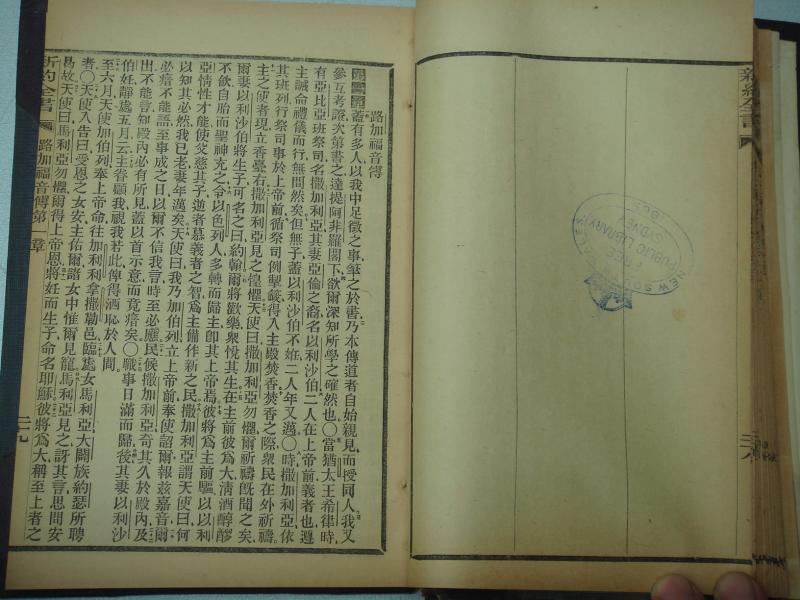 新約全書
三十八
NEW SOUTH WALES
FREE
PUBLIC LIBRARY
SYDNEY
路加福音傳
蓋有多人以我中足徵之事筆之於書乃本傳道者自始親見而授同人我又
參互考證次第書之達提阿非羅閣下欲爾深知所學之確然也〇當猶太王希律時
有亞比亞班祭司名撒加利亞其妻亞倫之裔名以利沙伯二人在上帝前義者也遵
主誡命禮儀而行無間然矣但無子蓋以利沙伯不姙二人年又邁〇時撒加利亞依
其班列行祭司事於上帝前循祭司例掣籤得入主殿焚香焚香之際衆民在外祈禱
主之使者現立香臺右撒加利亞見之惶懼天使曰撒加利亞勿懼爾祈禱旣聞之矣
爾妻以利沙伯將生子可名之曰約翰爾將歡樂衆悅其生在主前彼爲大淸酒醇醪
不飮自胎而聖神充之令以色列人多轉而歸主卽其上帝焉彼將爲主前驅以以利
亞情性才能使父慈其子逆者慕義者之智爲主備作新之民撒加利亞謂天使曰何
以知其必然我已老妻年邁矣天使曰我乃加伯列立上帝前奉使詔爾報兹嘉音爾
必瘖不能語至事成之日以爾不信我言時至必應民候撒加利亞奇其久於殿內及
出不能言知殿內必有所見蓋以首示意而竟瘖矣〇職事日滿而歸後其妻以利沙
伯妊靜處五月云主眷顧我視我若此俾得洒恥於人間
至六月天使加伯列奉上帝命往加利利拿撒勒邑臨處女馬利亞大闢族約瑟所聘
者〇天使入告曰受恩之女安主佑爾諸女中惟爾見寵馬利亞見之訝其言思問安
曷故天使曰馬利亞勿懼爾得上帝恩將妊而生子命名耶穌彼將爲大稱至上者之
新約全書 路加福音傳第一章 三十九